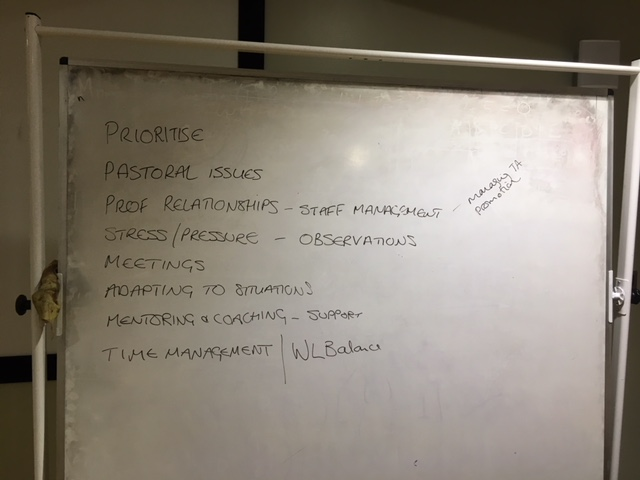 PRIORITISE
PASTORAL ISSUES
PROF RELATIONSHIPS - STAFF MANAGEMENT - managing TA
promotion
STRESS/PRESSURE - OBSERVATIONS
MEETINGS
ADAPTING TO SITUATIONS
MENTORING & COACHING - SUPPORT
TIME MANAGEMENT | WLBalance